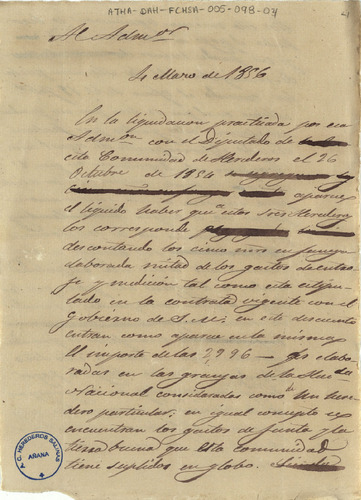 ATHA-DAH-FCHSA-005-098-04
Al Admor
4 Marzo de 1856
En la liquidacion practicada por esa
Admon con el Diputado de
esta Comunidad de Herederos el 26
Octubre de 1854
aparece
el liquido haber que a estos Sres Herederos
les corresponde
descontando los cinco mrs en fanega
elaborada mitad de los gastos de entro
je y medicion tal como esta estipu
lado en la contrata vigente con el
Gobierno de S.M.; en este descuento
entran como aparece en la misma
el importe de las 2996 fgs elabo
radas en las granjas de la Hacda
Nacional consideradas como un here
dero particular; en igual concepto se
encuentran los gastos de junta y la
tierra buena que esta comunidad
tiene suplidos en globo.
A.C. HEREDEROS SALINAS
AÑANA